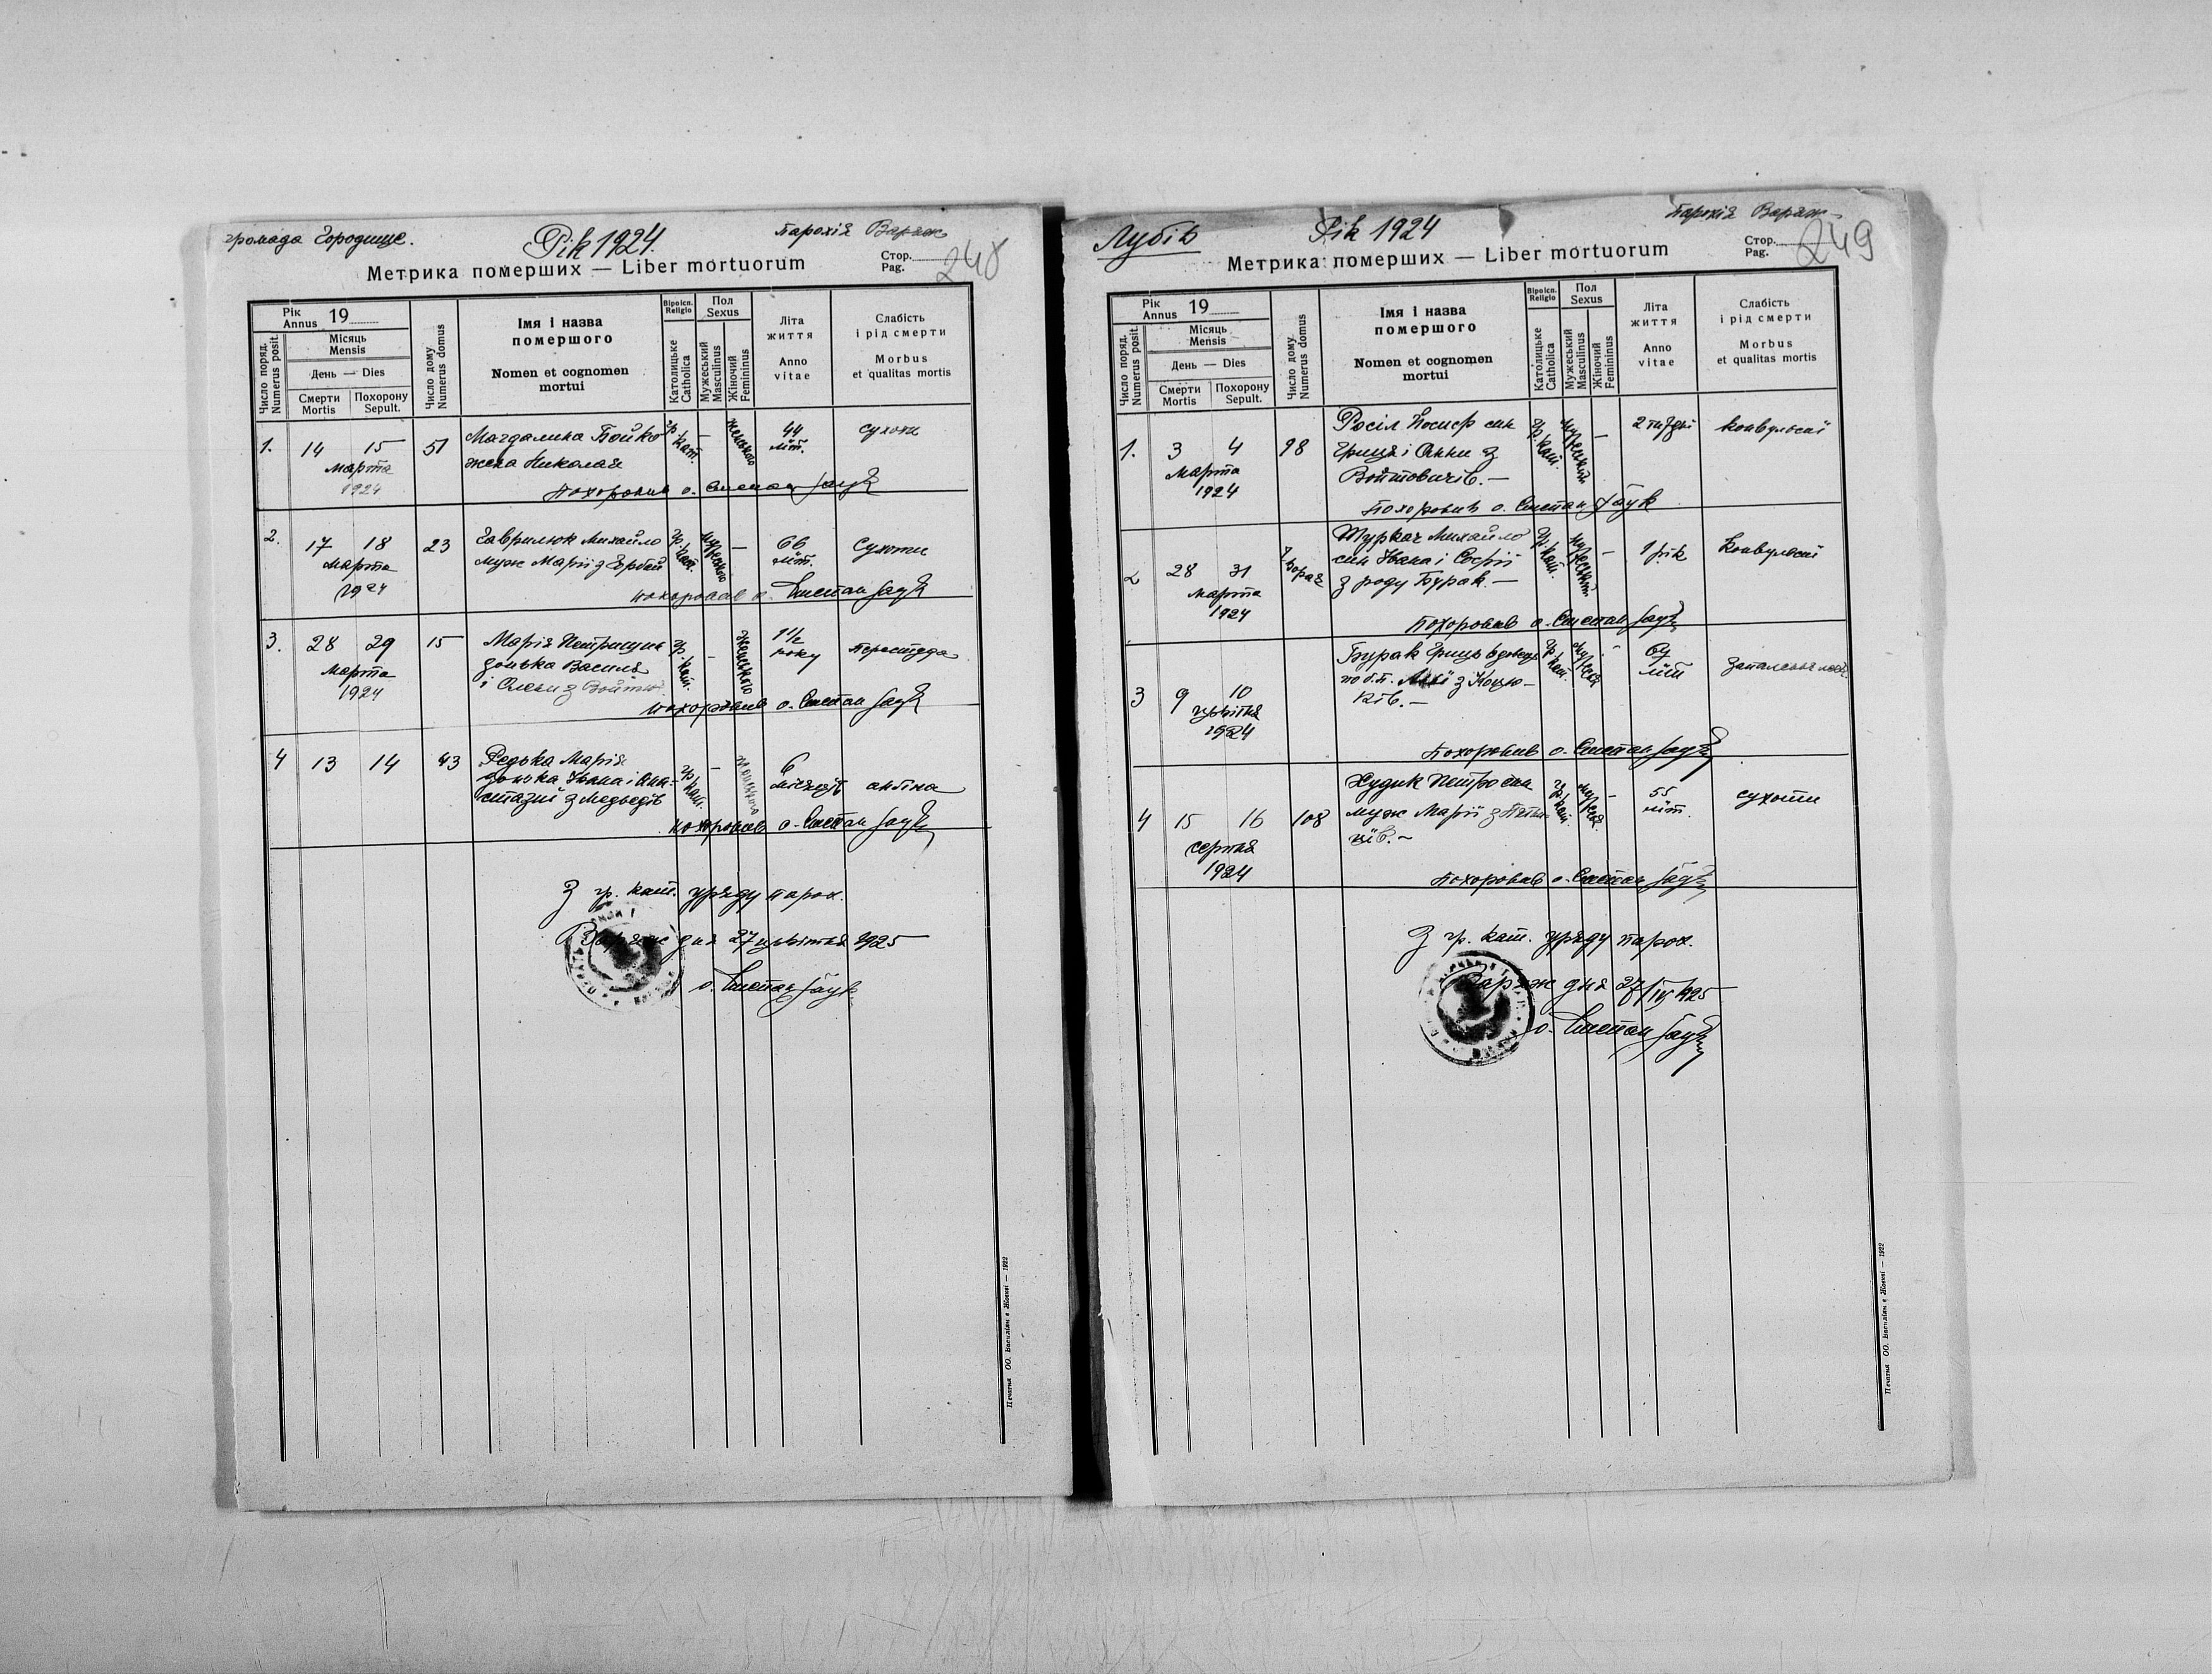 громада Городище.
Рік 1924.
Парохія Варяж
Стор.
Pag.
248
Метрика померших — Liber mortuorum
Число поряд.
Numerus posit.
Рік
Annus 19
Місяць
Mensis
День — Dies
Смерти
Mortis
Похорону
Sepult.
Число дому
Numerus domus
Імя і назва
помершого
Nomen et cognomen
mortui
Віроісп.
Religio
Католицьке
Catholica
Пол
Sexus
Мужеський
Masculinus
Жіночий
Femininus
Літа
життя
Anno
vitae
Слабість
і рід смерти
Morbus
et qualitas mortis
1. 14 15 51 Магдалина Бойко гр. кат. — женського 44 літ. сухоти
марта жена Николая
1924
Похоронив о. Степан
2. 17 18 23 Гаврилюк Михайло гр. кат. мужеского — 66 літ. Сухоти
Марта муж Марії з
1924
похоронив о. Степан
3. 28 29 15 Марія Петрищин гр. кат. — женського 1 1/2 року
Марта донька Василя
1924 і Олени з
похоронив о. Степан
4 13 14 43 Редька Марія гр. кат. — 6 місяців ангіна
донька Івана і Ана-
стазиї з Медведів
похоронив о. Степан
З гр. кат. уряду парох.
Варяж дня 27 цвітня 1925
о. Степан
Лубів
Рік 1924
Парохія Варяж
Стор.
Pag.
249
Метрика померших — Liber mortuorum
Число поряд.
Numerus posit.
Рік
Annus 19
Місяць
Mensis
День — Dies
Смерти
Mortis
Похорону
Sepult.
Число дому
Numerus domus
Імя і назва
помершого
Nomen et cognomen
mortui
Віроісп.
Religio
Католицьке
Catholica
Пол
Sexus
Мужеський
Masculinus
Жіночий
Femininus
Літа
життя
Anno
vitae
Слабість
і рід смерти
Morbus
et qualitas mortis
1. 3 4 98 Росіл Йосиф син гр. кат. мужеский — 2 тиждні конвульсиї
Марта Гриця і Анни з
1924 Войтовичів. —
Похоронив о. Степан
2 28 31 Туркач Михайло гр. кат. мужеский — 1 рік Конвульсиї
Марта син Івана і Софії
1924 з роду Бурак. —
Похоронив о. Степан
3 9 10 Бурак Гриць вдовець гр. кат. — літ
цвітня по бл. з
1924 ків. —
Похоронив о. Степан
4 15 16 108 Худик Петро гр. кат. — 55 літ. сухоти
серпня муж Марії з
1924 ців. —
Похоронив о. Степан
З гр. кат. уряду парох.
Варяж дня 27/IV 1925
о. Степан
Печатня ОО. Василіян в Жовкві — 1922
Печатня ОО. Василіян в Жовкві — 1922